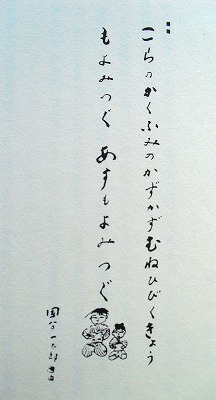 こらのかくふみのかずかずむねひびくきょう
もよみつぐ あすもよみつぐ
国分一太郎